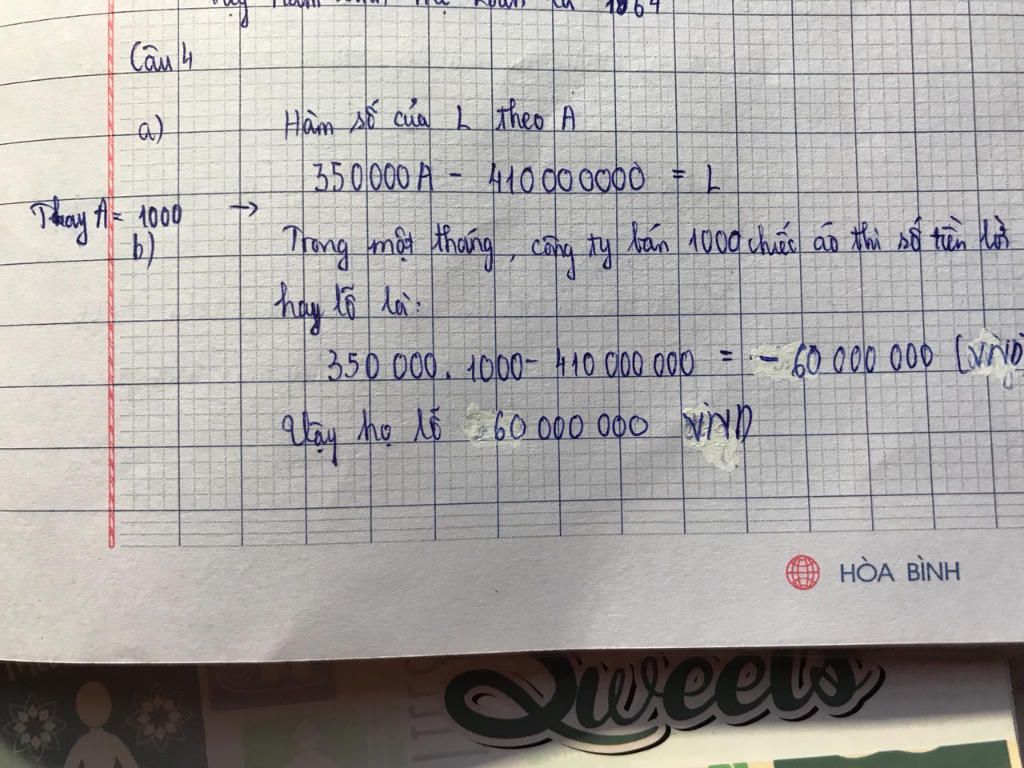 1064
Câu 4
a) Hàm số của L theo A
350000A - 410000000 = L
Thay A = 1000 →
b) Trong một tháng, công ty bán 1000 chiếc áo thì số tiền lời
hay lỗ là:
350 000. 1000 - 410 000 000 = - 60 000 000 (VNĐ)
Vậy họ lỗ 60 000 000 VNĐ
HÒA BÌNH
Sweets